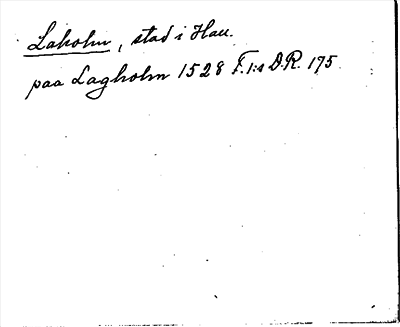 Laholm, stad i Hall.
paa Lagholm 1528 F. I:s D.R. 175